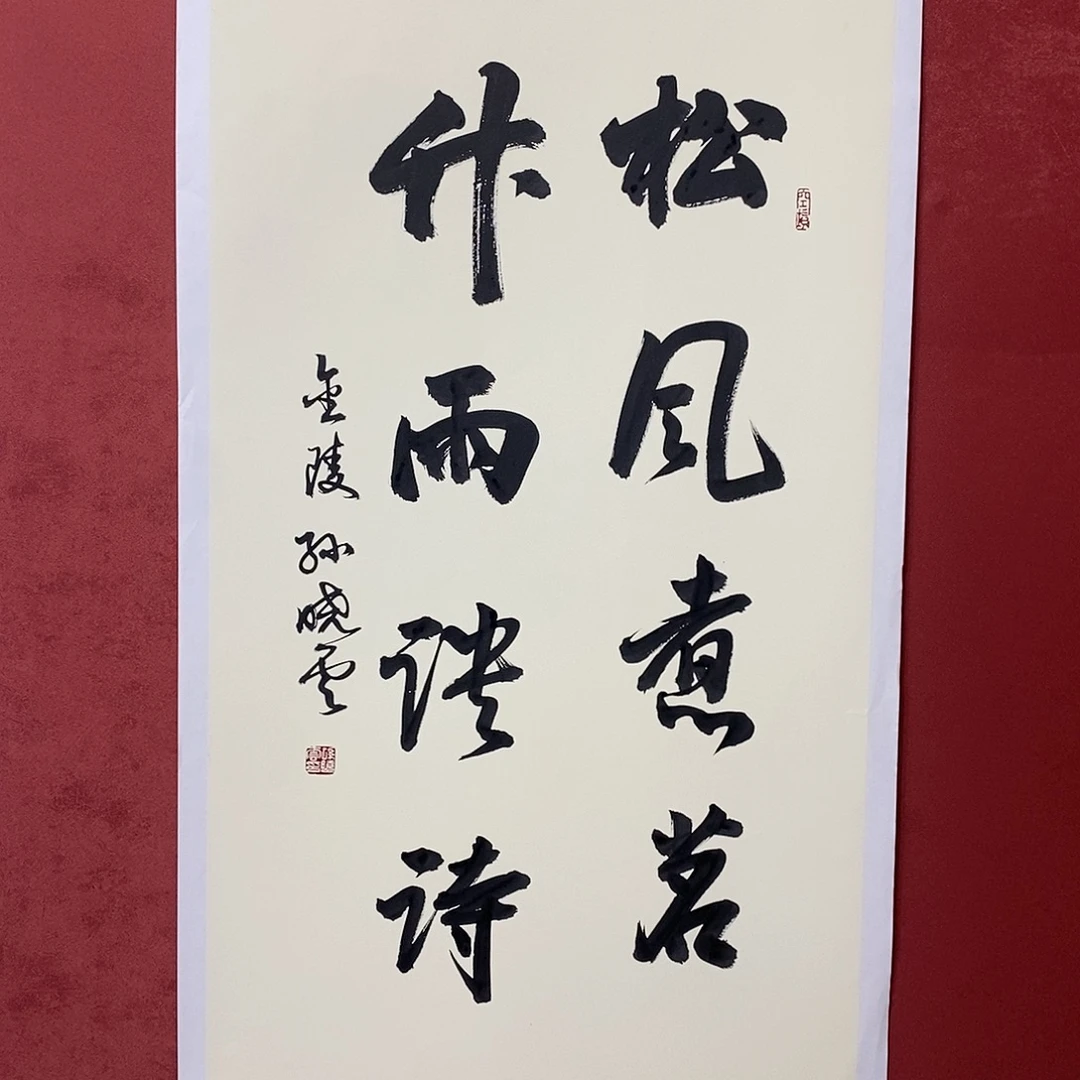 松风煮茗
竹雨谈诗
金陵孙晓云